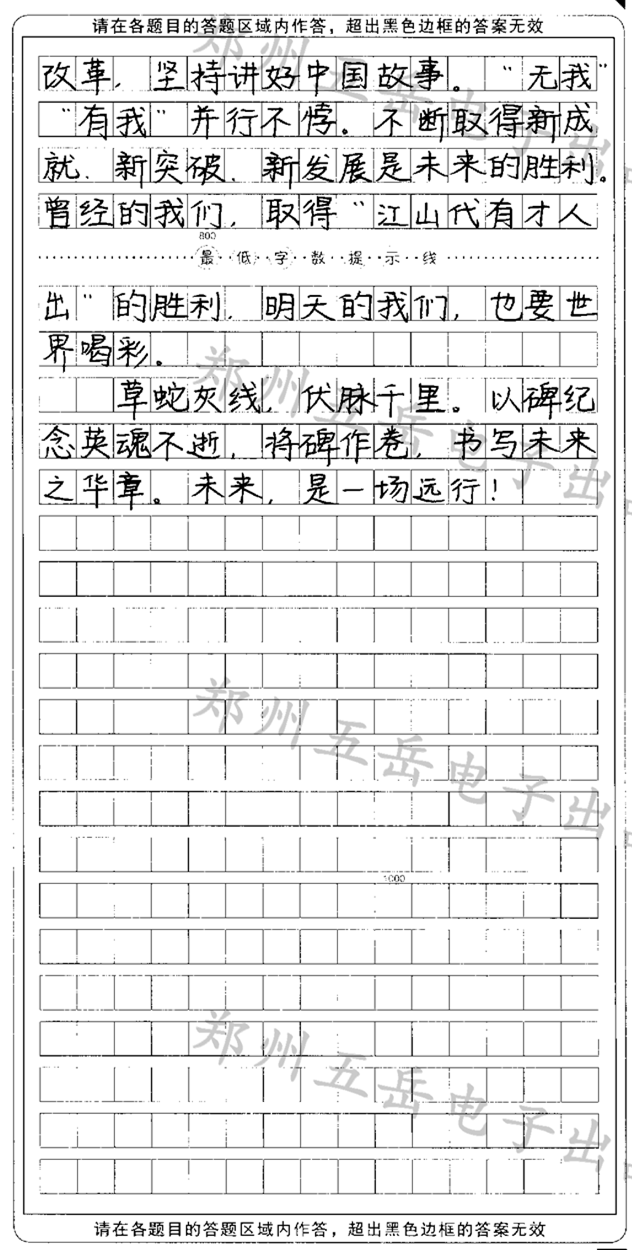 请在各题目的答题区域内作答，超出黑色边框的答案无效
改革，坚持讲好中国故事。“无我”
“有我”并行不悖。不断取得新成
就、新突破、新发展是未来的胜利。
曾经的我们，取得“江山代有才人
800
最低字数提示线
出”的胜利，明天的我们，也要世
界喝彩。
草蛇灰线，伏脉千里。以碑纪
念英魂不逝，将碑作卷，书写未来
之华章。未来，是一场远行！
郑州五岳电子出
郑州五岳电子出
郑州五岳电子出
1000
郑州五岳电子出
请在各题目的答题区域内作答，超出黑色边框的答案无效